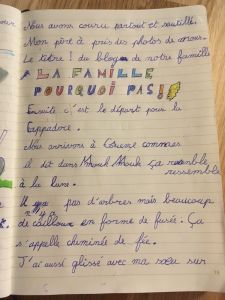 Nous avons couru partout et sautillé.
Mon père à pris des photos de nous.
Le titre ! du blog de notre famille
LA FAMILLE
POURQUOI PAS!!
Ensuite c'est le départ pour la
Cappadoce.
Nous arrivons à Göreme comme
il dit dans ça ressemble
ressemble
à la lune.
Il y a pas d'arbres mais beaucoup
n'y a
de cailloux en forme de fusée. Ça
s'appelle cheminée de fée.
J'ai aussi glissé avec ma sœur sur